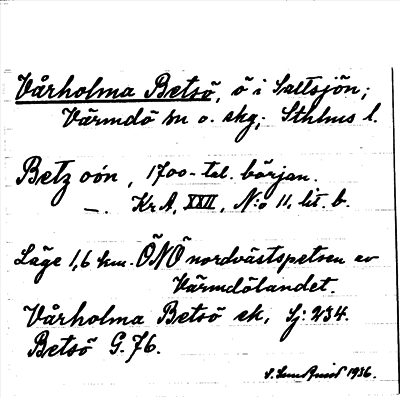 Vårholma Betsö, ö i Saltsjön;
Värmdö sn o. skg; Sthlms l.
Betz oön, 1700-tal. början.
—. KrA, XXII, N:o 11, lit. b.
Läge 1,6 km. ÖNÖ nordvästspetsen av
Värmdölandet.
Vårholma Betsö ek, Sj: 234.
Betsö G. 76.
1936.